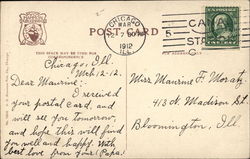 POST CARD
THIS SPACE MAY BE USED FOR
CORRESPONDENCE
CHICAGO
MAR
7 PM
1912
ILL.
Chicago, Ill.
Mch-12-12.
Dear Maurine:
I received
your postal card, and
will see you tomorrow,
and hope this will find
you well and happy. With
best love from your Papa.
Miss Maurine F. Moratz
413 N. Madison St.
Bloomington, Ill